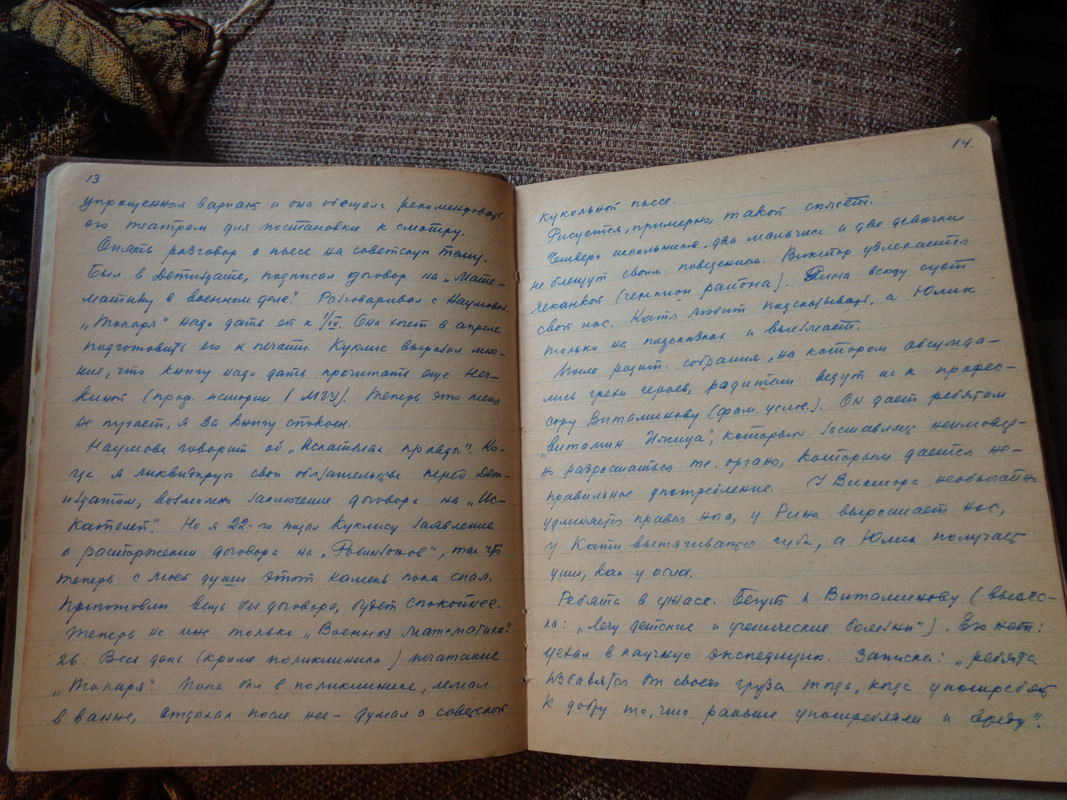 13
упрощенный вариант и она обещала рекомендовать
его театрам для постановки к смотру.
Опять разговор о пьесе на советскую тему.
Был в Детиздате, подписал договор на „Мате-
матику в военном деле". Разговаривал с Наумовой.
„Топаря" надо дать ей к 1/IV. Она хочет в апреле
подготовить его к печати. Куклис выразил мне-
ние, что книгу надо дать прочитать еще Неч-
киной (проф. истории I МГУ). Теперь это меня
не пугает, я за книгу спокоен.
Наумова говорит об „Искателях правды". Ко-
гда я ликвидирую свои обязательства перед Дет-
издатом, возможно заключение договора на „Ис-
кателей". Но я 22-го подал Куклису заявление
о расторжении договора на „Робинзонов", так что
теперь с моей души этот камень пока спал.
Приготовлю вещь без договора, будет спокойнее.
Теперь за мной только „Военная математика".
26. Весь день (кроме поликлиники) печатание
„Топаря". Пока был в поликлинике, лежал
в ванне, отдыхал после нее – думал о советской
14.
кукольной пьесе.
Рисуется, примерно, такой сюжет.
Четверо школьников, два мальчика и две девочки
не блещут своим поведением. Виктор увлекается
чеканкой (чемпион района). Рина всюду сует
свой нос. Катя любит подсказывать, а Юлик
только на подсказках и выезжает.
После родит. собрания, на котором обсужда-
лись грехи героев, родители ведут их к профес-
сору Витаминову (фам. услов.). Он дает ребятам
„витамин Ижица", который заставляет неимовер-
но разрастаться те органы, которым дается не-
правильное употребление. У Виктора необычайно
удлиняется правая нога, у Рины вырастает нос,
у Кати вытягиваются губы, а Юлик получает
уши, как у осла.
Ребята в ужасе. Бегут к Витаминову (вывес-
ка: „Лечу детские и ученические болезни"). Его нет:
уехал в научную экспедицию. Записка: „ребята
избавятся от своего груза тогда, когда употребят
к добру то, что раньше употребляли к вреду".